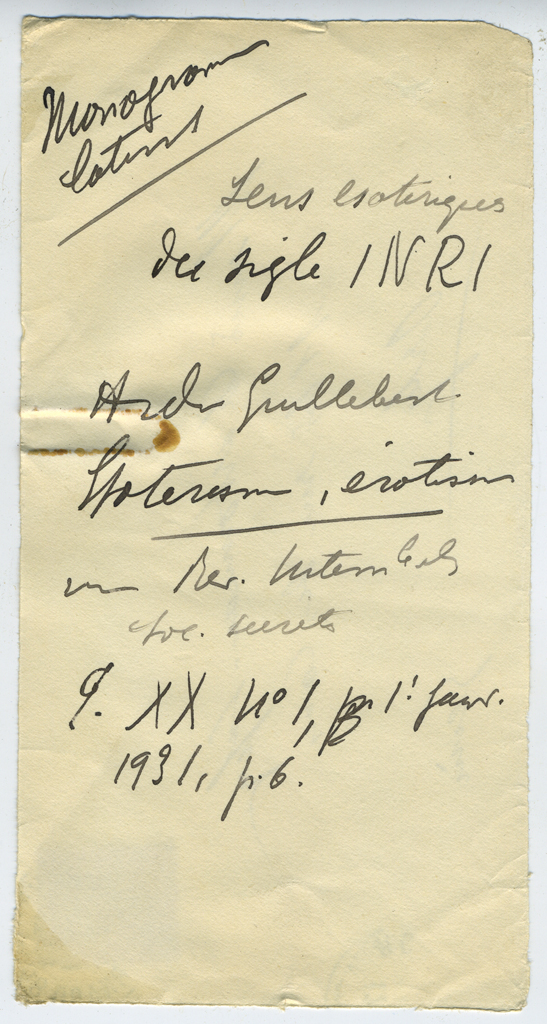 Monogramm
latins
Sens esoteriques
du sigle INRI
Guillebert
Esoterisme, érotisme
Rev. Intern
soc. secrets
XX No 1, 1' janv.
1931, p. 6.